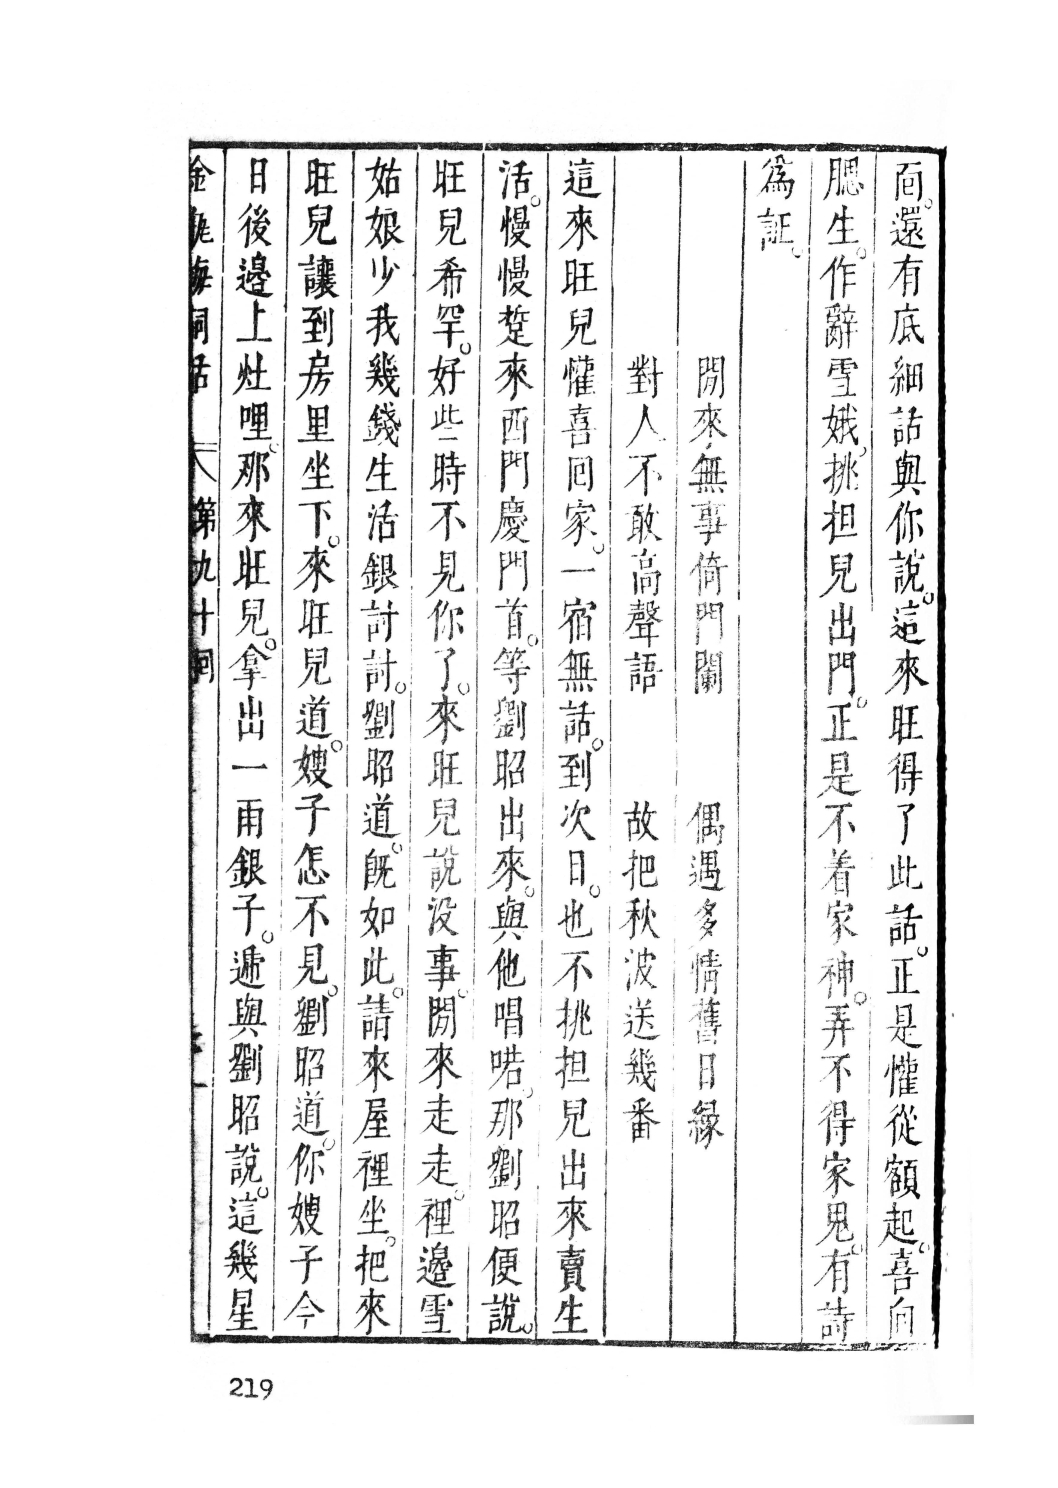 面。還有底細話與你說。這來旺得了此話。正是懽從額起。喜向
腮生。作辭雪娥。挑担兒出門。正是不着家神。弄不得家鬼。有詩
為証。
閒來無事倚門闌　偶遇多情舊日緣
對人不敢高聲語　故把秋波送幾番
這來旺兒懽喜回家。一宿無話。到次日。也不挑担兒出來賣生
活。慢慢踅來西門慶門首。等劉昭出來。與他唱喏。那劉昭便說。
旺兒希罕。好些時不見你了。來旺兒說没事。閒來走走。裡邊雪
姑娘少我幾錢生活銀討討。劉昭道。旣如此。請來屋裡坐。把來
旺兒讓到房里坐下。來旺兒道。嫂子怎不見。劉昭道。你嫂子今
日後邊上灶哩。那來旺兒。拿出一兩銀子。遞與劉昭說。這幾星
金瓶梅詞話　第九十囘
219